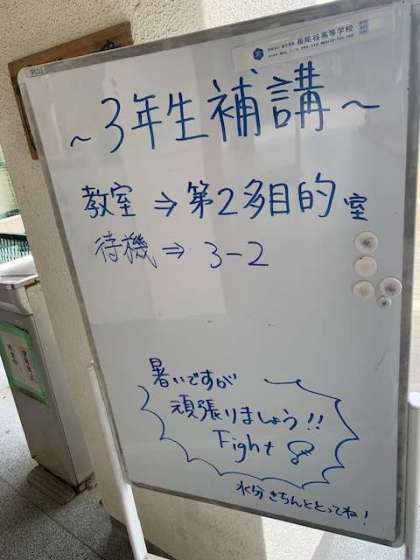 ～3年生補講～
教室 ⇒ 第2多目的室
待機 ⇒ 3-2
暑いですが
頑張りましょう!!
Fight
水分きちんととってね!